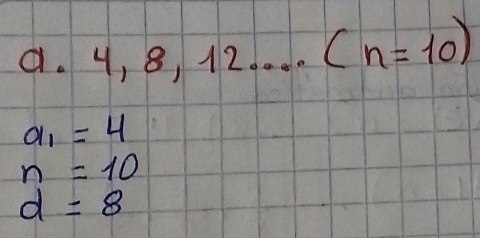 a. 4, 8, 12.... (n=10)
a₁ = 4
n = 10
d = 8